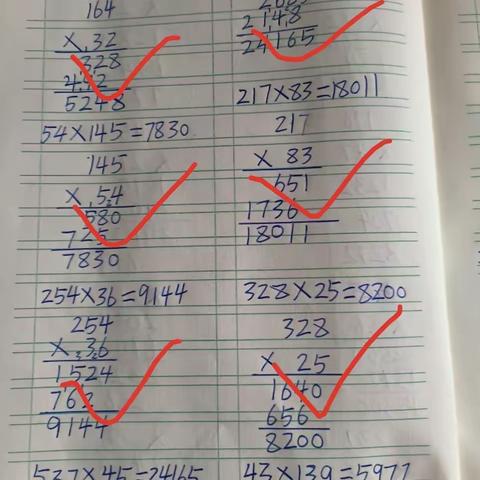 164
× 32
328
492
5248
54×145=7830
145
× 54
580
725
7830
254×36=9144
254
× 36
1524
762
9144
537×45=24165
2148
24165
217×83=18011
217
× 83
651
1736
18011
328×25=8200
328
× 25
1640
656
8200
43×139=5977